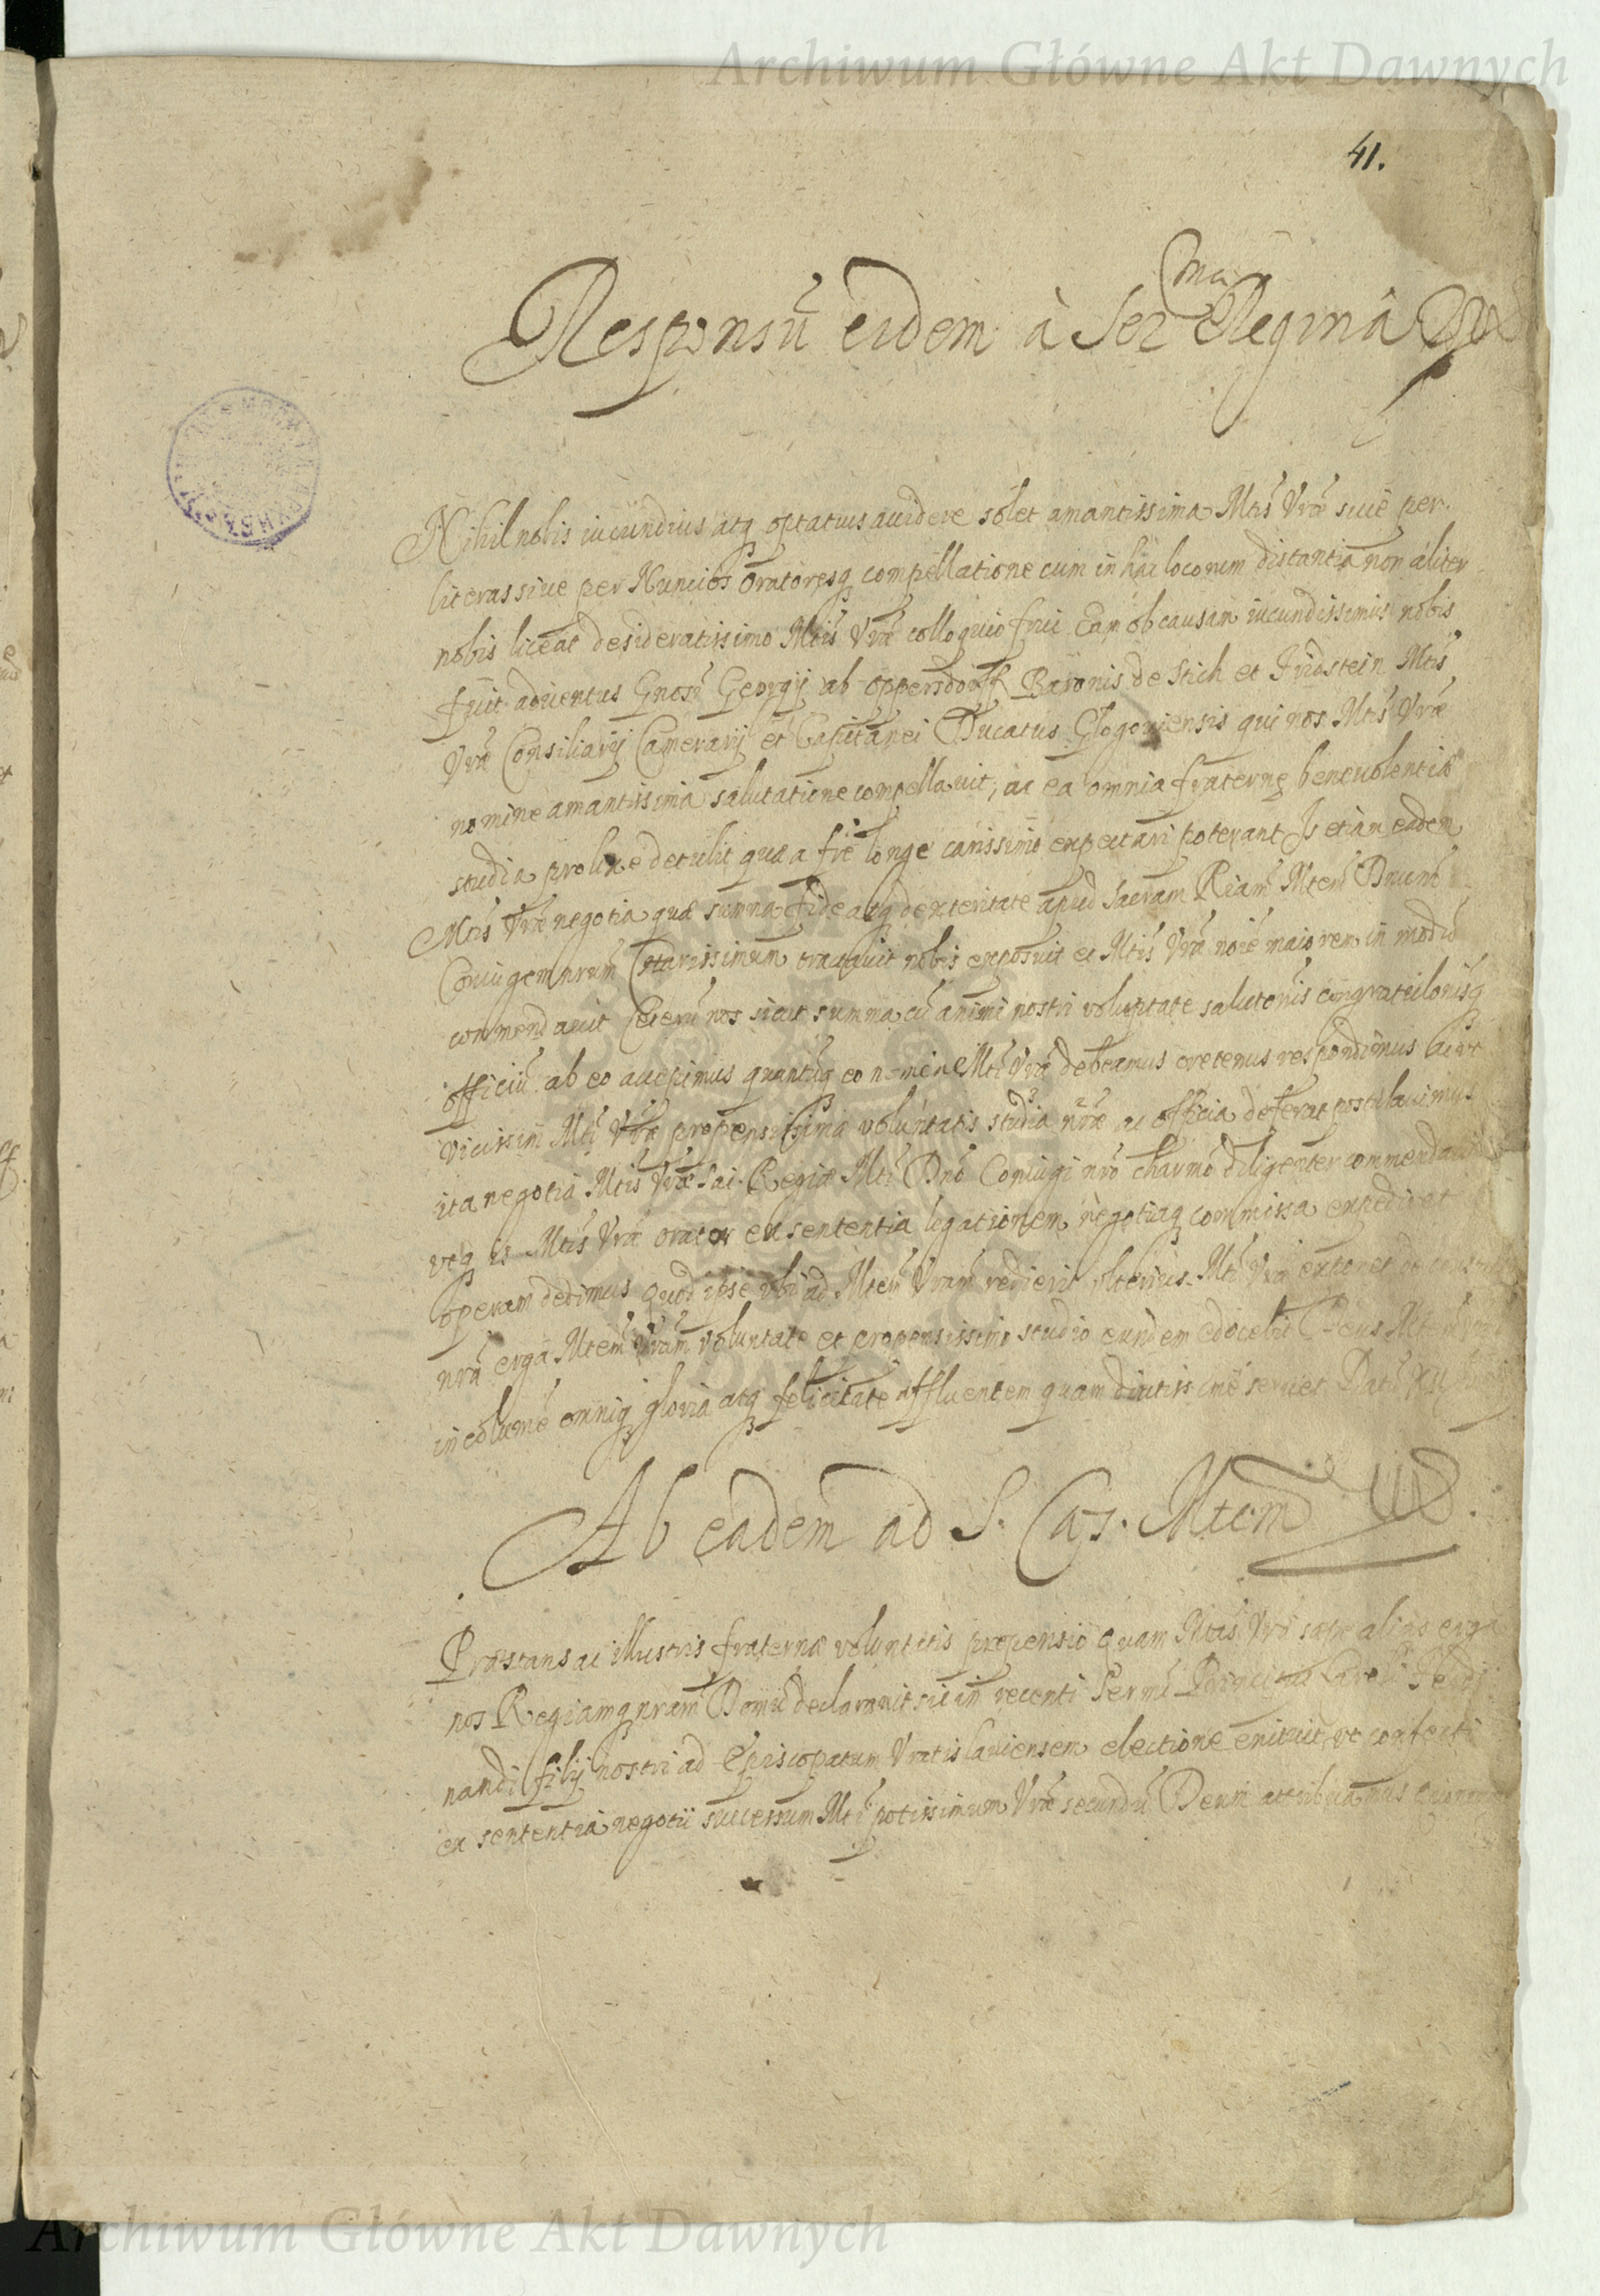 Archiwum Główne Akt Dawnych
41.
Responsũ eidem à Ser ma Regina
Nihil nobis iucundius atq optatius accidere solet amantissima Mtis Vrae siue per
literas siue per Nuncios Oratoresq compellatione cum in hac locorum distantia non aliter
nobis liceat desideratissimo Mtis Vrae colloquio frui Eam ob causam iucundissimus nobis
fuit aduentus Gnosi Georgij ab Oppersdorff Baronis de Aich et Fridstein Mtis
Vrae Consiliarij Camerarij et Capitanei Ducatus Glogouiensis qui nos Mtis Vrae
nomine amantissima salutatione compellauit, ac ea omnia fraternę beneuolentiae
studia prolixe detulit quae a frē longe carissimo expectari poterant Is etiam eadem
Mtis Vrae negotia quae summa fide atq dexteritate apud Sacram Riam Mtem Dnum
Coniugem nrum Charissimum tractauit nobis exposuit et Mtis Vrae noīe maiorem in modũ
commendauit Ceterũ nos sicut summa cũ animi nostri voluptate salutonis congratulonisq
officiũ ab eo accepimus quantũq eo nomine Mti Vrae debeamus oretenus respondimus ac vt
vicissim Mti Vrae propensissima voluntatis studia nrae ac officia deferat postulauimus
ita negotia Mtis Vrae Sac. Regiae Mti Dno Coniugi nro charmo diligenter commendauimus
vtq is Mtis Vrae orator ex sententia legationem negotiaq commissa expediret
operam dedimus Quod ipse vbi ad Mtem Vram redierit vlterius Mti Vrae exponet de
nrā erga Mtem Vram voluntate et propensissimo studio eundem edocebit Deus Mtem
incolumē omniq gloria atq felicitate affluentem quam diutissimē seruet Datũ XII
Ab eadem ad S. Caes. Mtem
Praestans ac illustris fraternae voluntatis propensio quam Mtas Vra saepe alias erga
nos Regiamq nram Domũ declarauit sic in recenti Sermi Principis Caroli Ferdi
nandi filij nostri ad Episcopatum Vratislauiensem electione enituit vt confecti
ex sententia negotii successum Mti potissimum Vrae secundũ Deum attribuamus
Archiwum Główne Akt Dawnych